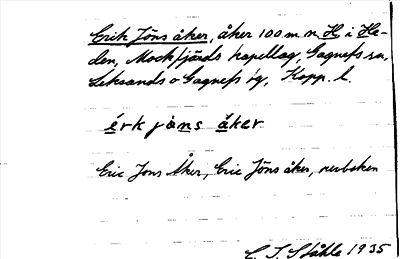 Erik Jöns åker, åker 100 m n H i He-
den, Mockfjärds kapellag, Gagnefs sn,
Leksands o Gagnefs tg, Kopp. l.
érk jɑns åker
Eric Jons Åker, Eric Jöns åker, renboken
C. I. Ståhle 1935